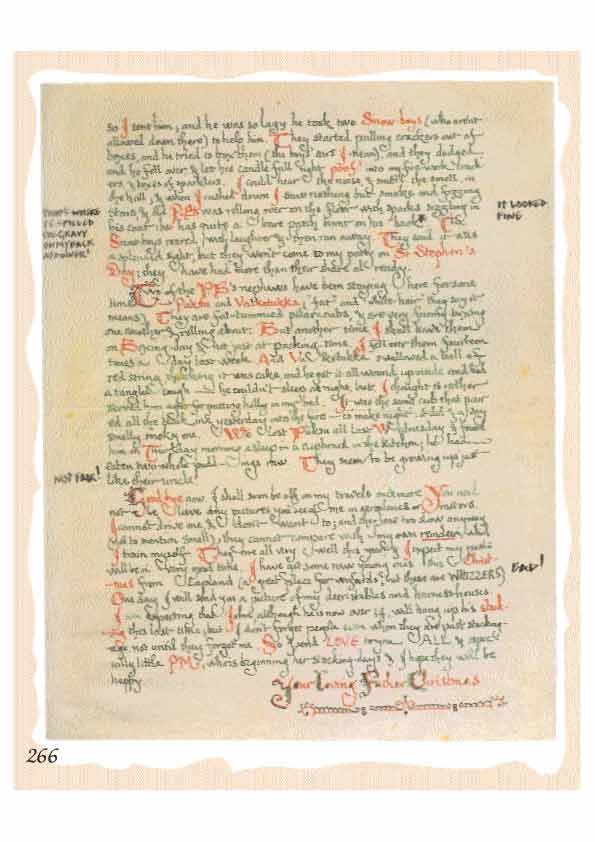 so I sent him, and he was so lazy he took two Snow-boys (who aren't
allowed down there) to help him. They started pulling crackers out of
boxes, and he tried to box them (the boys' ears I mean), and they dodged
and he fell over & let his candle fall right poof! into my firework crack-
ers & boxes of sparklers. I could hear the noise, & smell the smell, in
the hall, & when I rushed down I saw nothing but smoke and fizzing
stars, & old P.B. was rolling over on the floor with sparks sizzling in
his coat: he has quite a bare patch burnt on his back* The
Snow-boys roared with laughter & then ran away. They said it was
a splendid sight, but they won't come to my party on St Stephen's
Day; they have had more than their share already.
IT LOOKED
FINE
THAT'S WHERE
SPILLED
THE GRAVY
ON MY BACK
AT DINNER!
Two of the P.B's nephews have been staying here for some
time: Paksu and Valkotukka ('fat' and 'white-hair' they say it
means). They are fat-tummied polar-cubs, & are very funny boxing
one another & rolling about. But another time I shall have them
on Boxing-day & not just at packing-time. I fell over them fourteen
times a day last week. And Valkotukka swallowed a ball of
red string, thinking it was cake, and he got it all wound up inside and had
a tangled cough — he couldn't sleep at night, but I thought it rather
served him right for putting holly in my bed. It was the same cub that pour-
ed all the black ink yesterday into the fire — to make night: it did & a very
smelly smoky one. We lost Paksu all last Wednesday & found
him on Thursday morning asleep in a cupboard in the kitchen; he had
eaten two whole puddings raw. They seem to be growing up just
like their uncle!
NOT FAIR!
Goodbye now. I shall soon be off on my travels once more. You need
not believe any pictures you see of me in aeroplanes or motors.
I cannot drive one, & I don't want to; and they are too slow anyway
(not to mention smell), they cannot compare with my own reindeer, which
I train myself. They are all very well this year, & I expect my posts
will be in very good time. I have got some new young ones this Christ-
mas from Lapland (a great place for wizards; but these are WHIZZERS)
BAD!
One day I will send you a picture of my deer-stables and harness-houses.
I am expecting that John, although he is now over 14, will hang up his stock-
ing this last time; but I don't forget people even when they are past stocking-
age, not until they forget me. So I send LOVE to you ALL & especi-
ally little PM, who is beginning her stocking-days & I hope they will be
happy.
Your loving Father Christmas
266